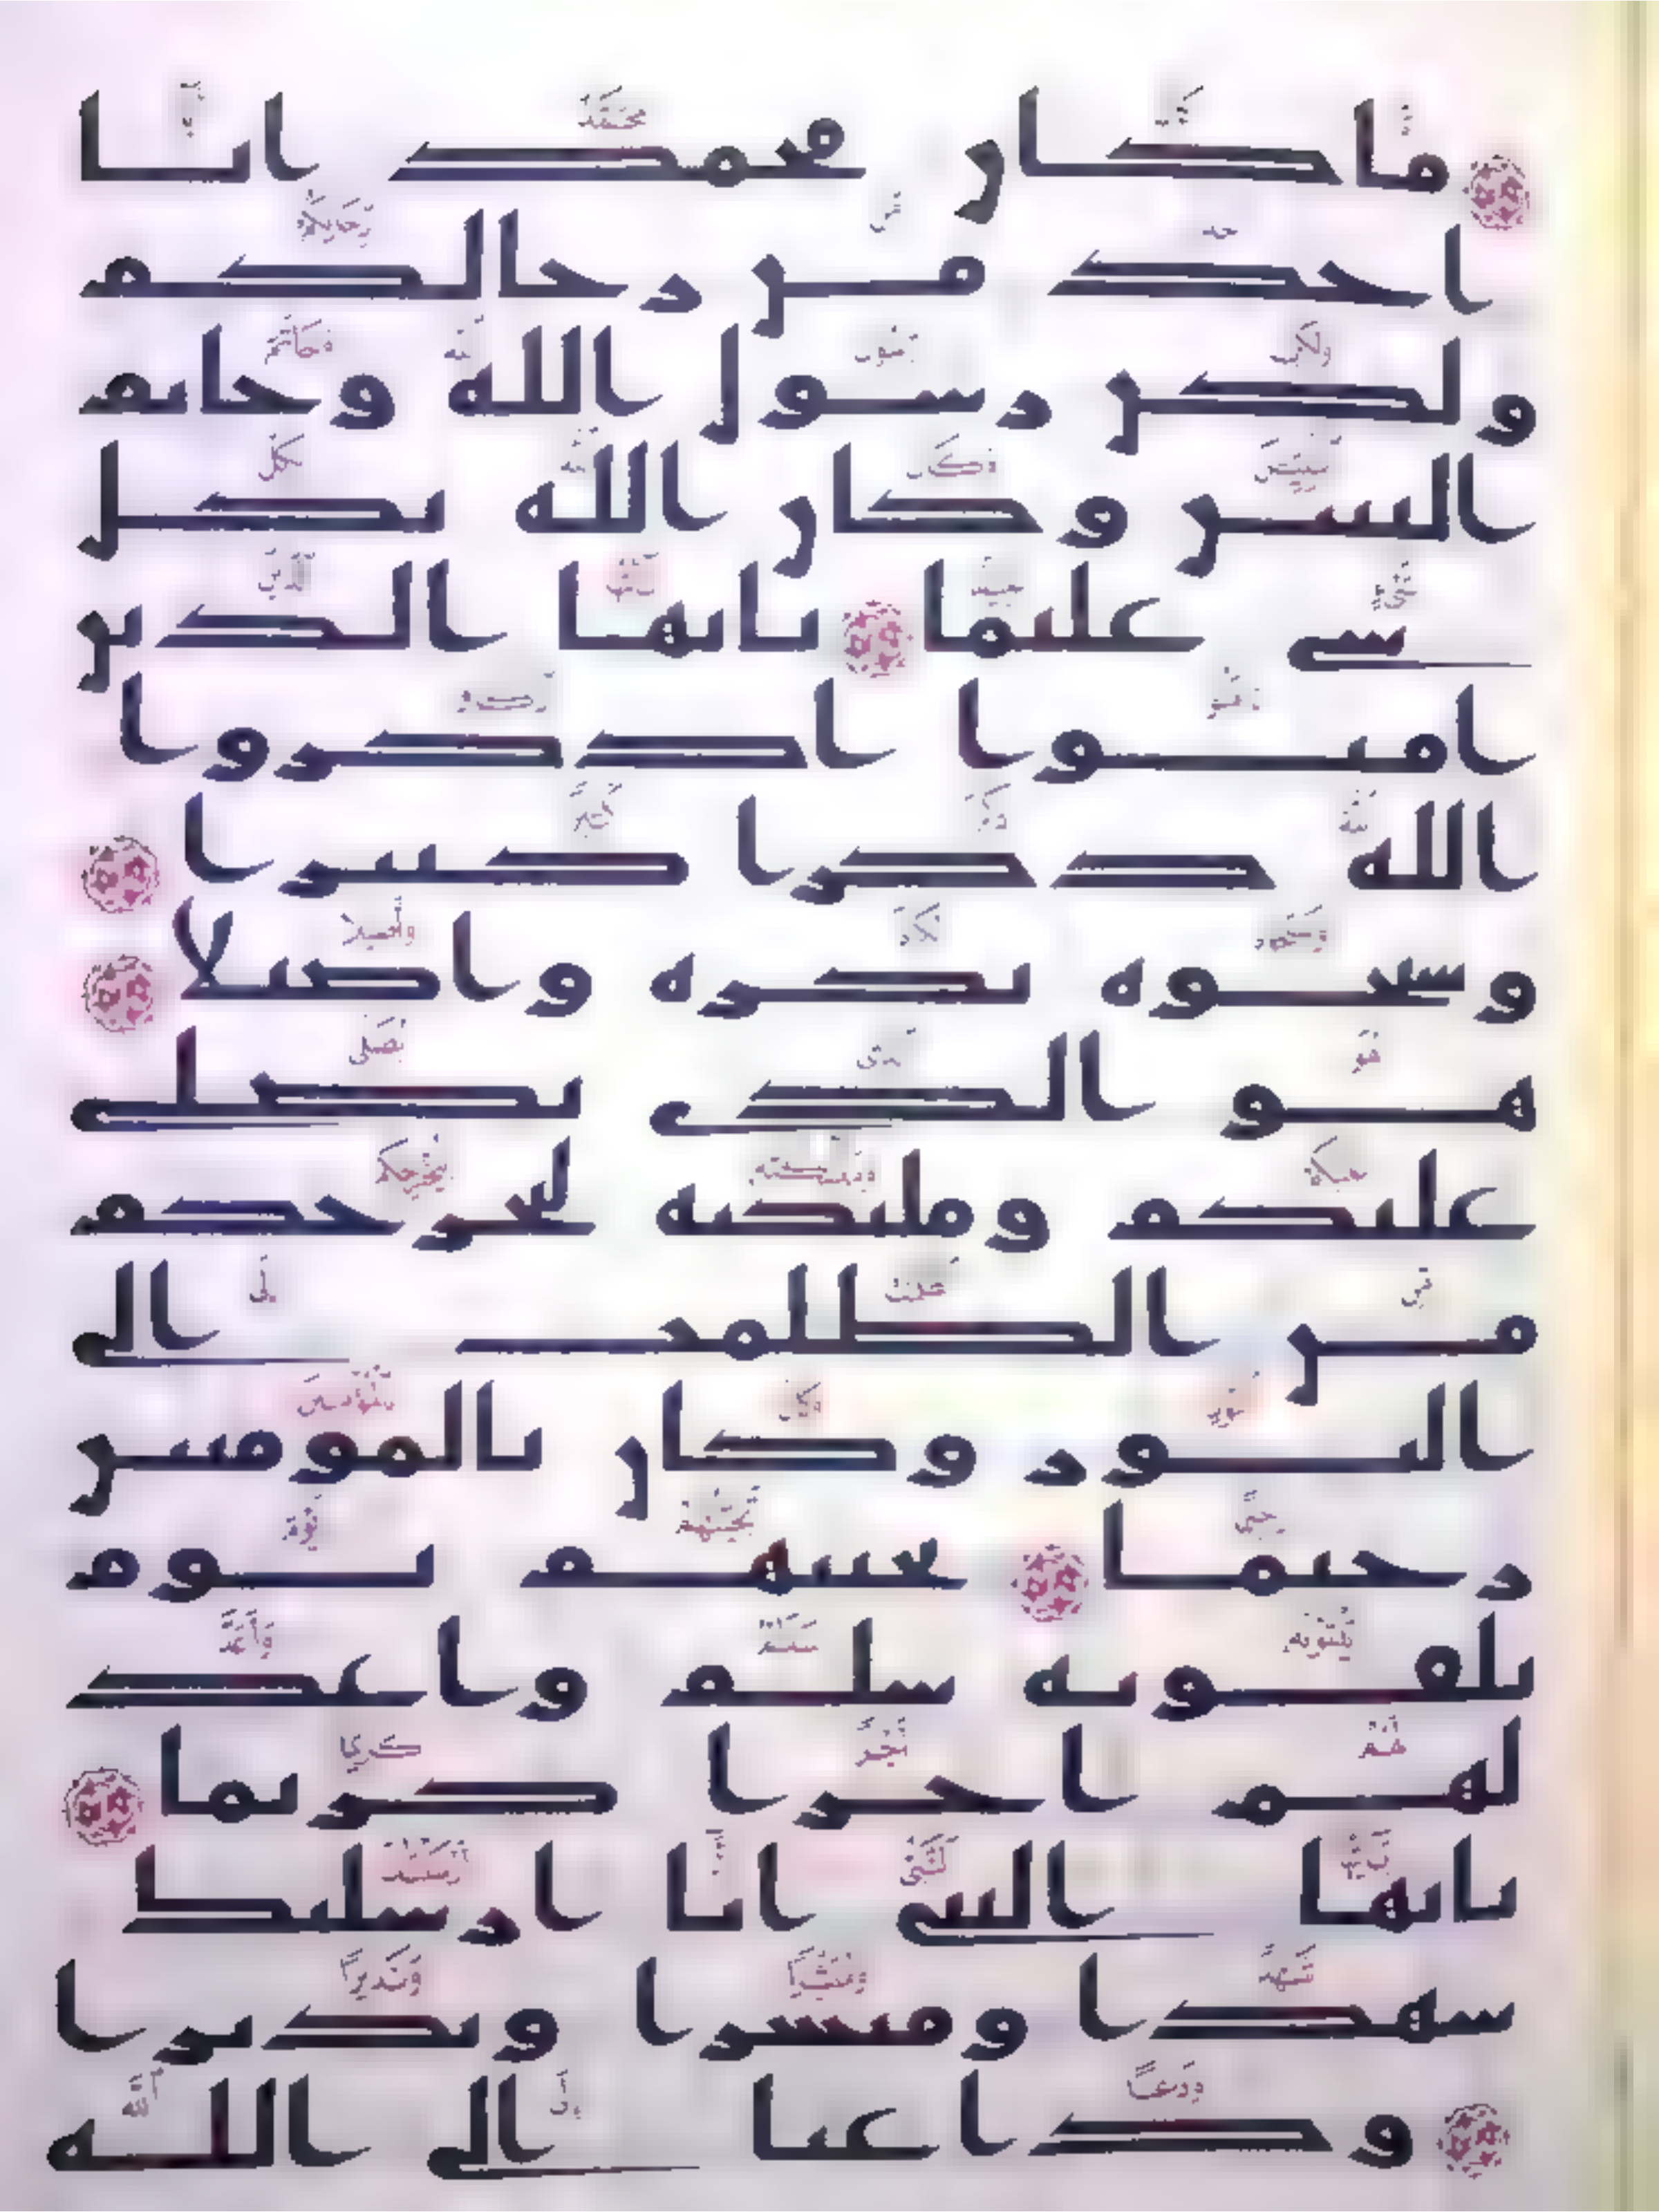 ما كان محمد ابا
احد من رجالكم
ولكن رسول الله وخاتم
النبين وكان الله بكل
شي عليما يايها الذين
امنوا اذكروا
الله ذكرا كثيرا
وسبحوه بكره واصيلا
هو الذي يصلي
عليكم ومليكته ليخرجكم
من الظلمت الى
النور وكان بالمومنين
رحيما تحيتهم يوم
يلقونه سلم واعد
لهم اجرا كريما
يايها النبي انا ارسلنك
شهدا ومبشرا ونذيرا
وداعيا الى الله